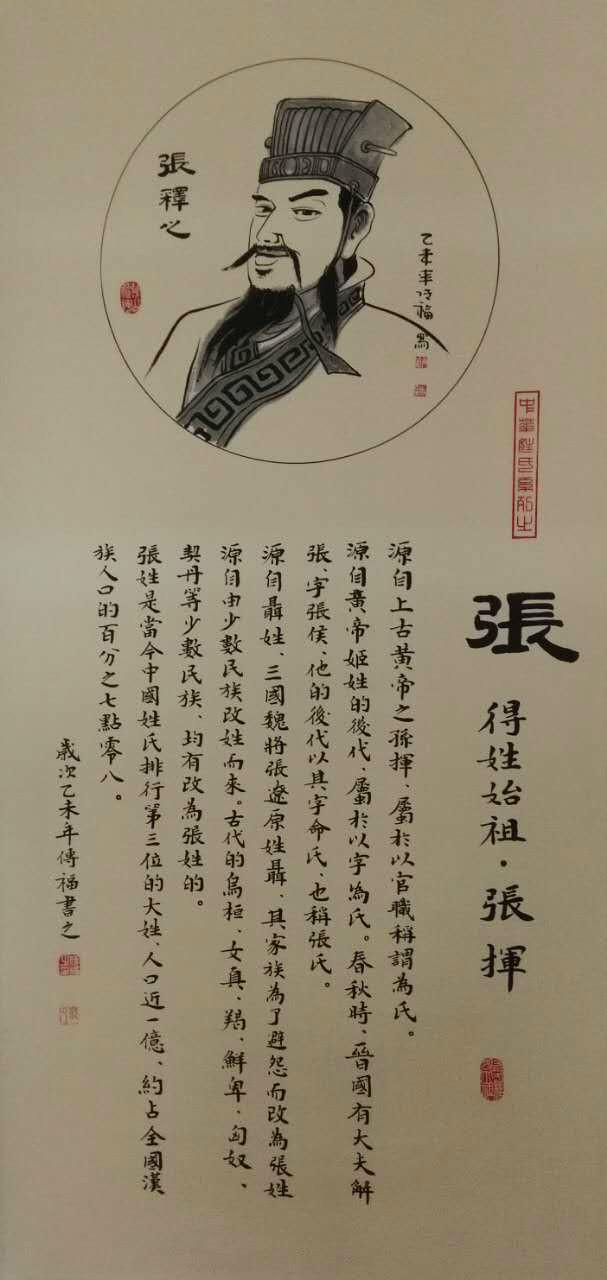 張釋之
乙未年傳福寫
中華姓氏系列之
張
得姓始祖·張揮
源自上古黃帝之孫揮、屬於以官職稱謂為氏。
源自黃帝姬姓的後代、屬於以字為氏。春秋時、晉國有大夫解
張、字張侯、他的後代以其字命氏、也稱張氏。
源自聶姓、三國魏將張遼原姓聶、其家族為了避怨而改為張姓
源自由少數民族改姓而來。古代的烏桓、女真、羯、鮮卑、匈奴、
契丹等少數民族、均有改為張姓的。
張姓是當今中國姓氏排行第三位的大姓、人口近一億、約占全國漢
族人口的百分之七點零八。
歲次乙未年傳福書之